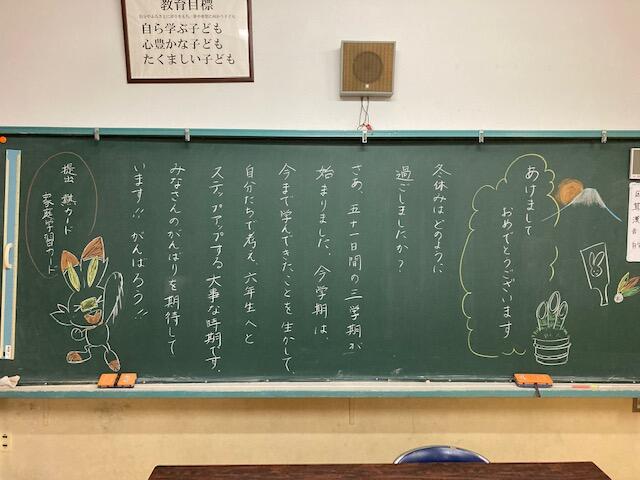 教育目標
自ら学ぶ子ども
心豊かな子ども
たくましい子ども
あけまして
おめでとうございます
冬休みはどのように
過ごしましたか？
さあ、五十一日間の三学期が
始まりました。今学期は、
今まで学んできたことを生かして、
自分たちで考え、六年生へと
ステップアップする大事な時期です。
みなさんのがんばりを期待して
います!! がんばろう!!
提出
カード
家庭学習カード